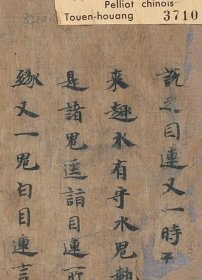 Pelliot chinois
Touen-houang 3710
說之目連又一時
來趣水有守水鬼
是諸鬼詣目連所
緣又一鬼白目連言